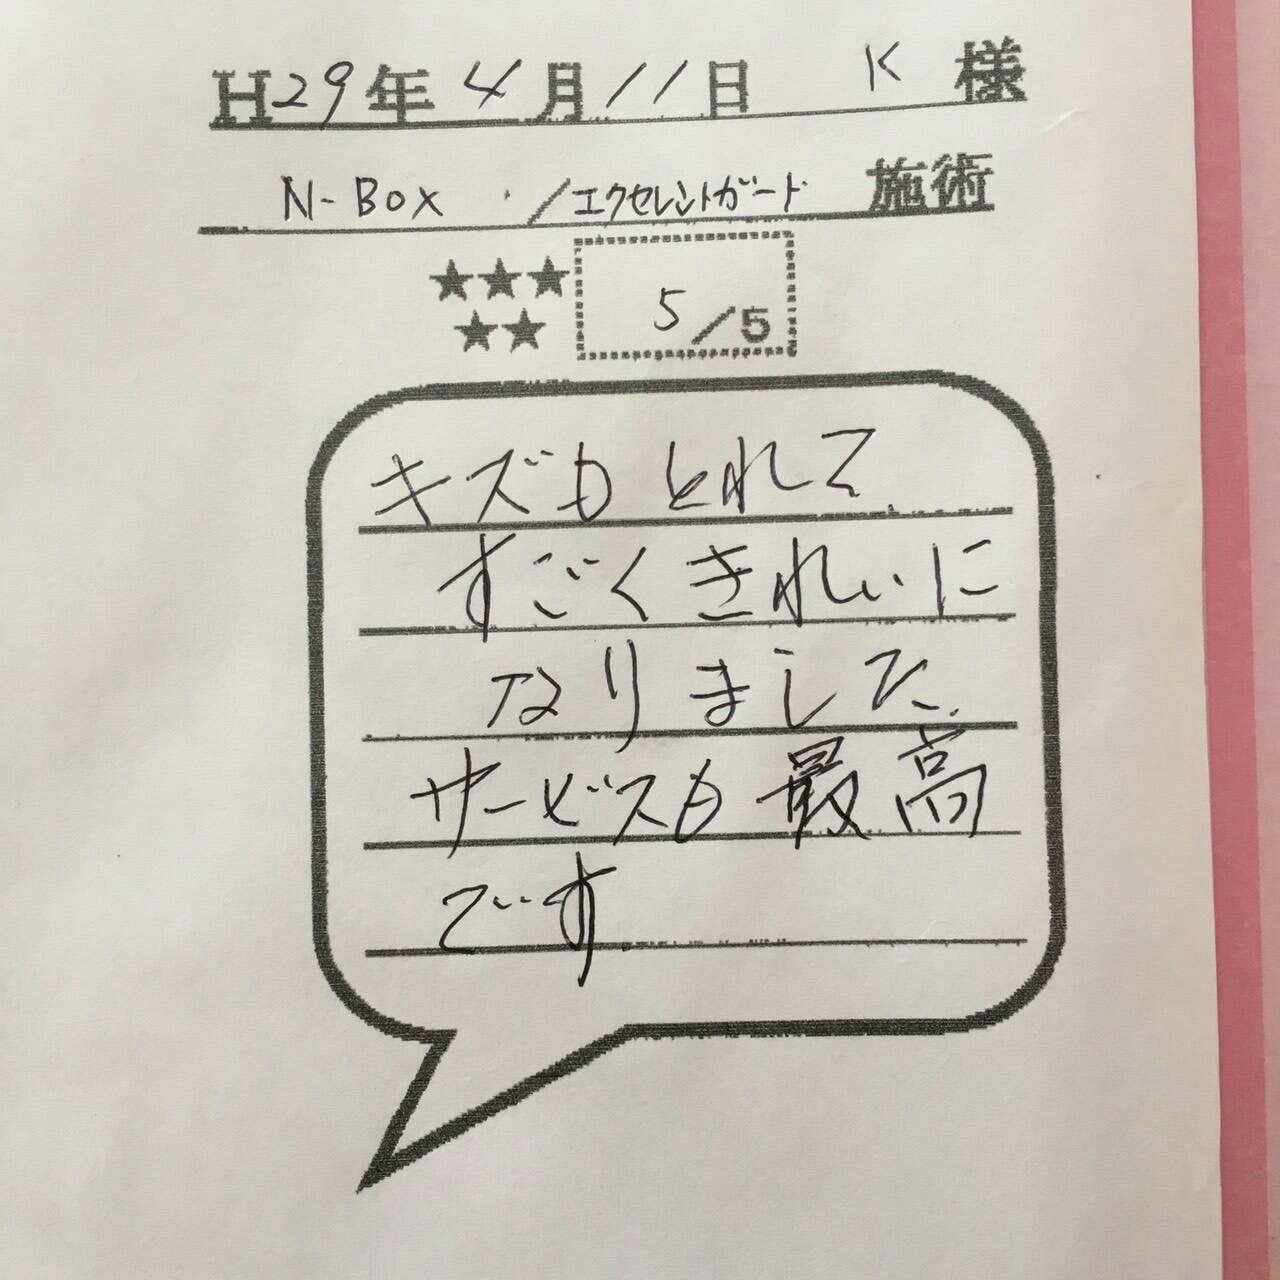 H29年4月11日 K 様
N-BOX /エクセレントガード 施術
★★★
★★
5/5
キズもとれて
すごくきれいに
なりました。
サービスも最高
です。